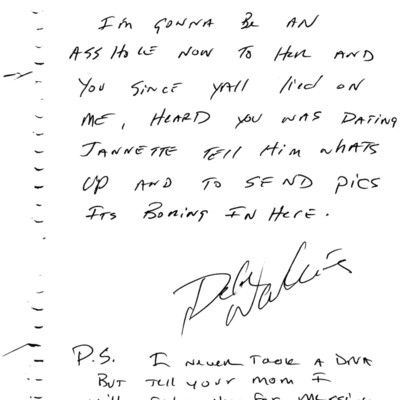 I'm GONNA BE AN
ASS HOLE NOW TO HER AND
YOU SINCE YALL lied ON
ME, HEARD YOU WAS DATING
JANNETTE TELL Him WHATS
UP AND TO SEND PICS
ITS BORING IN HERE.
P.S. I NEVER TOOK A DNA
BUT TELL YOUR MOM I